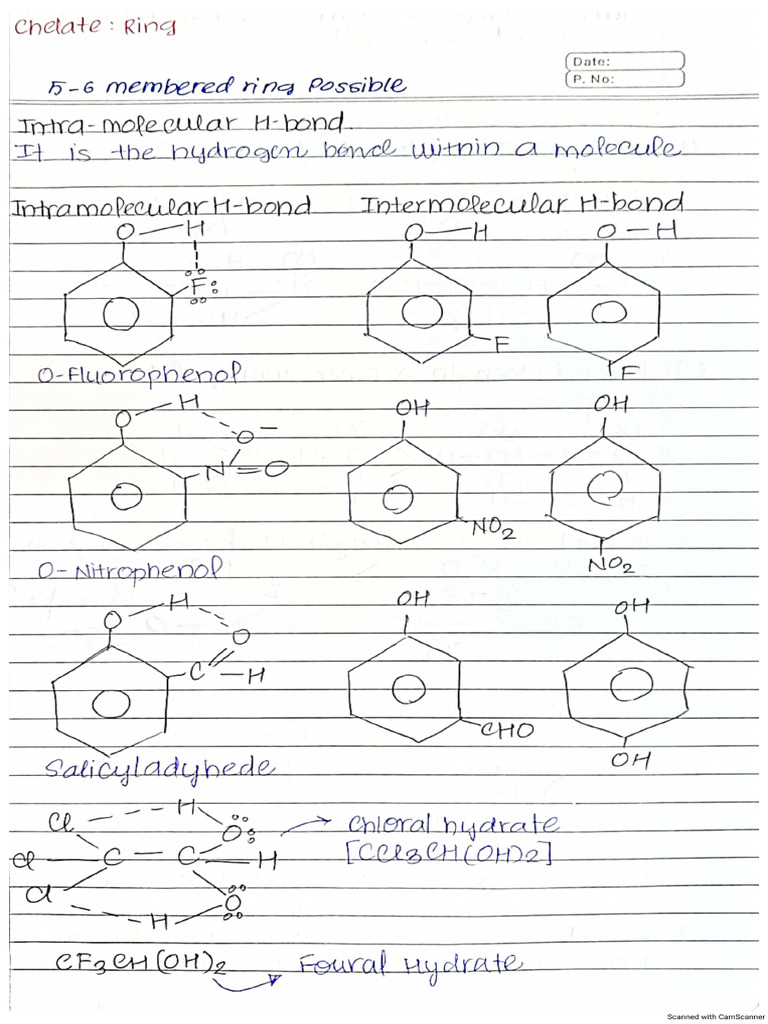 Chelate : Ring
Date:
P. No:
5-6 membered ring Possible
Intra-molecular H-bond
It is the hydrogen bond within a molecule
Intramolecular H-bond Intermolecular H-bond
O H O H O - H
F F F
O-Fluorophenol
O H OH OH
O-
N = O NO2 NO2
O-Nitrophenol
O H OH OH
O
C - H CHO OH
Salicyladyhede
Cl H O Chloral hydrate
Cl C - C H [CCl3CH(OH)2]
Cl H O
CF3CH(OH)2 Foural Hydrate
Scanned with CamScanner